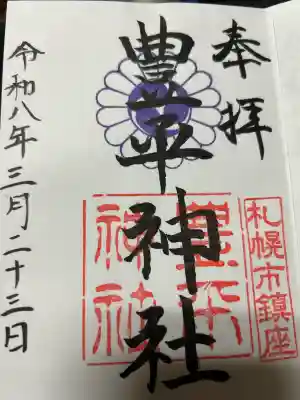 奉拝
豊平神社
札幌市鎮座
豊平
神社
令和八年三月二十三日